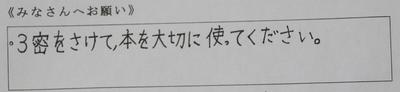 《みなさんへお願い》
・3密をさけて,本を大切に使ってください。